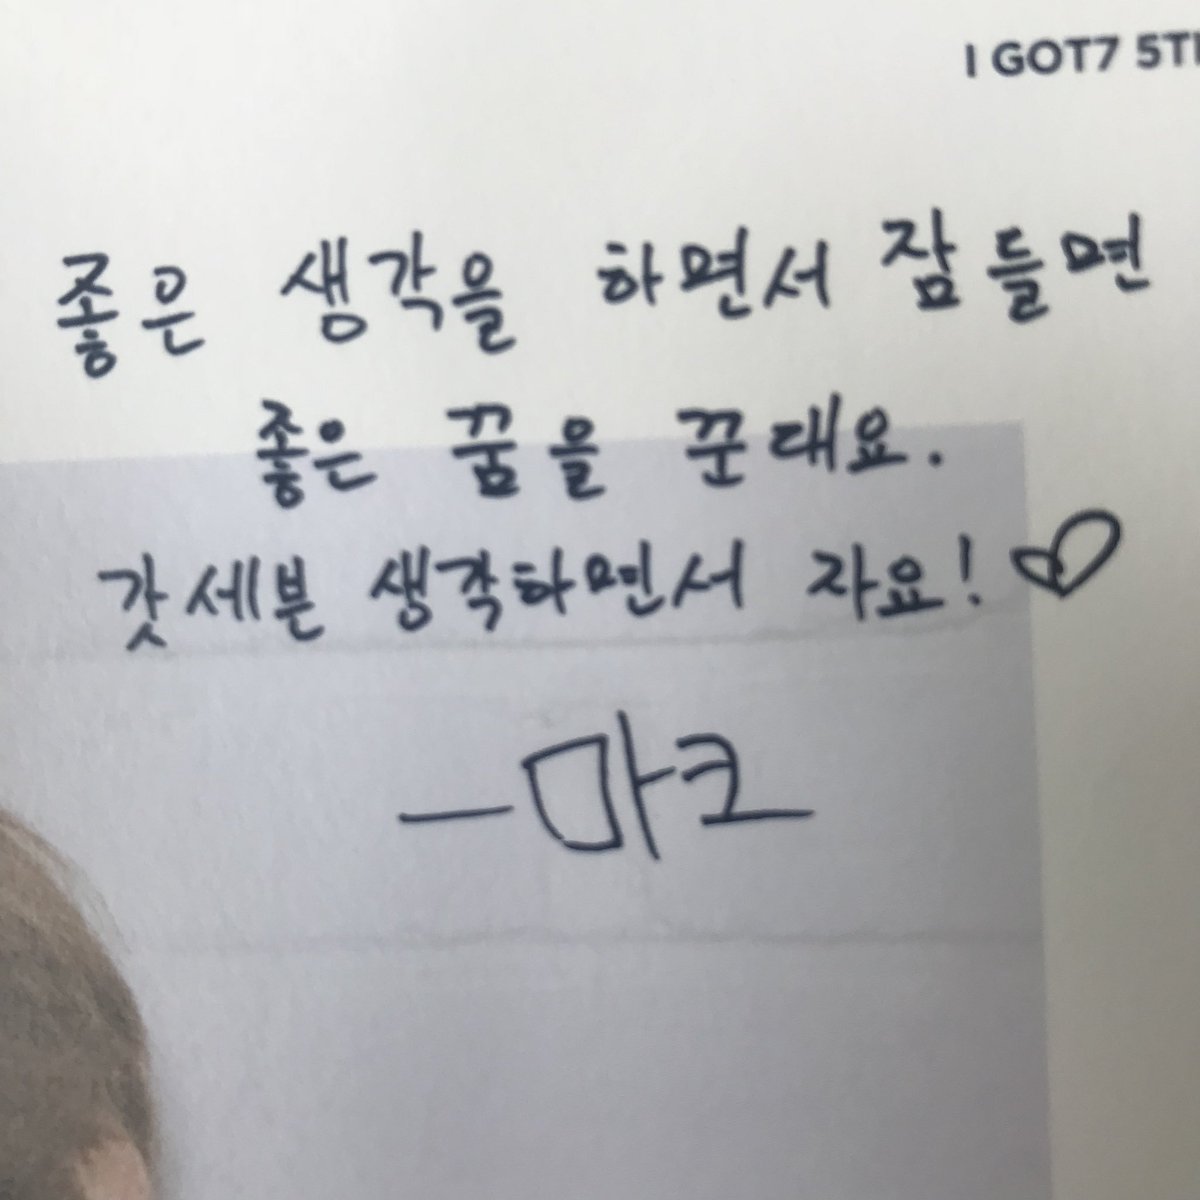 I GOT7 5T
좋은 생각을 하면서 잠들면
좋은 꿈을 꾼대요.
갓세븐 생각하면서 자요! ♡
—마크